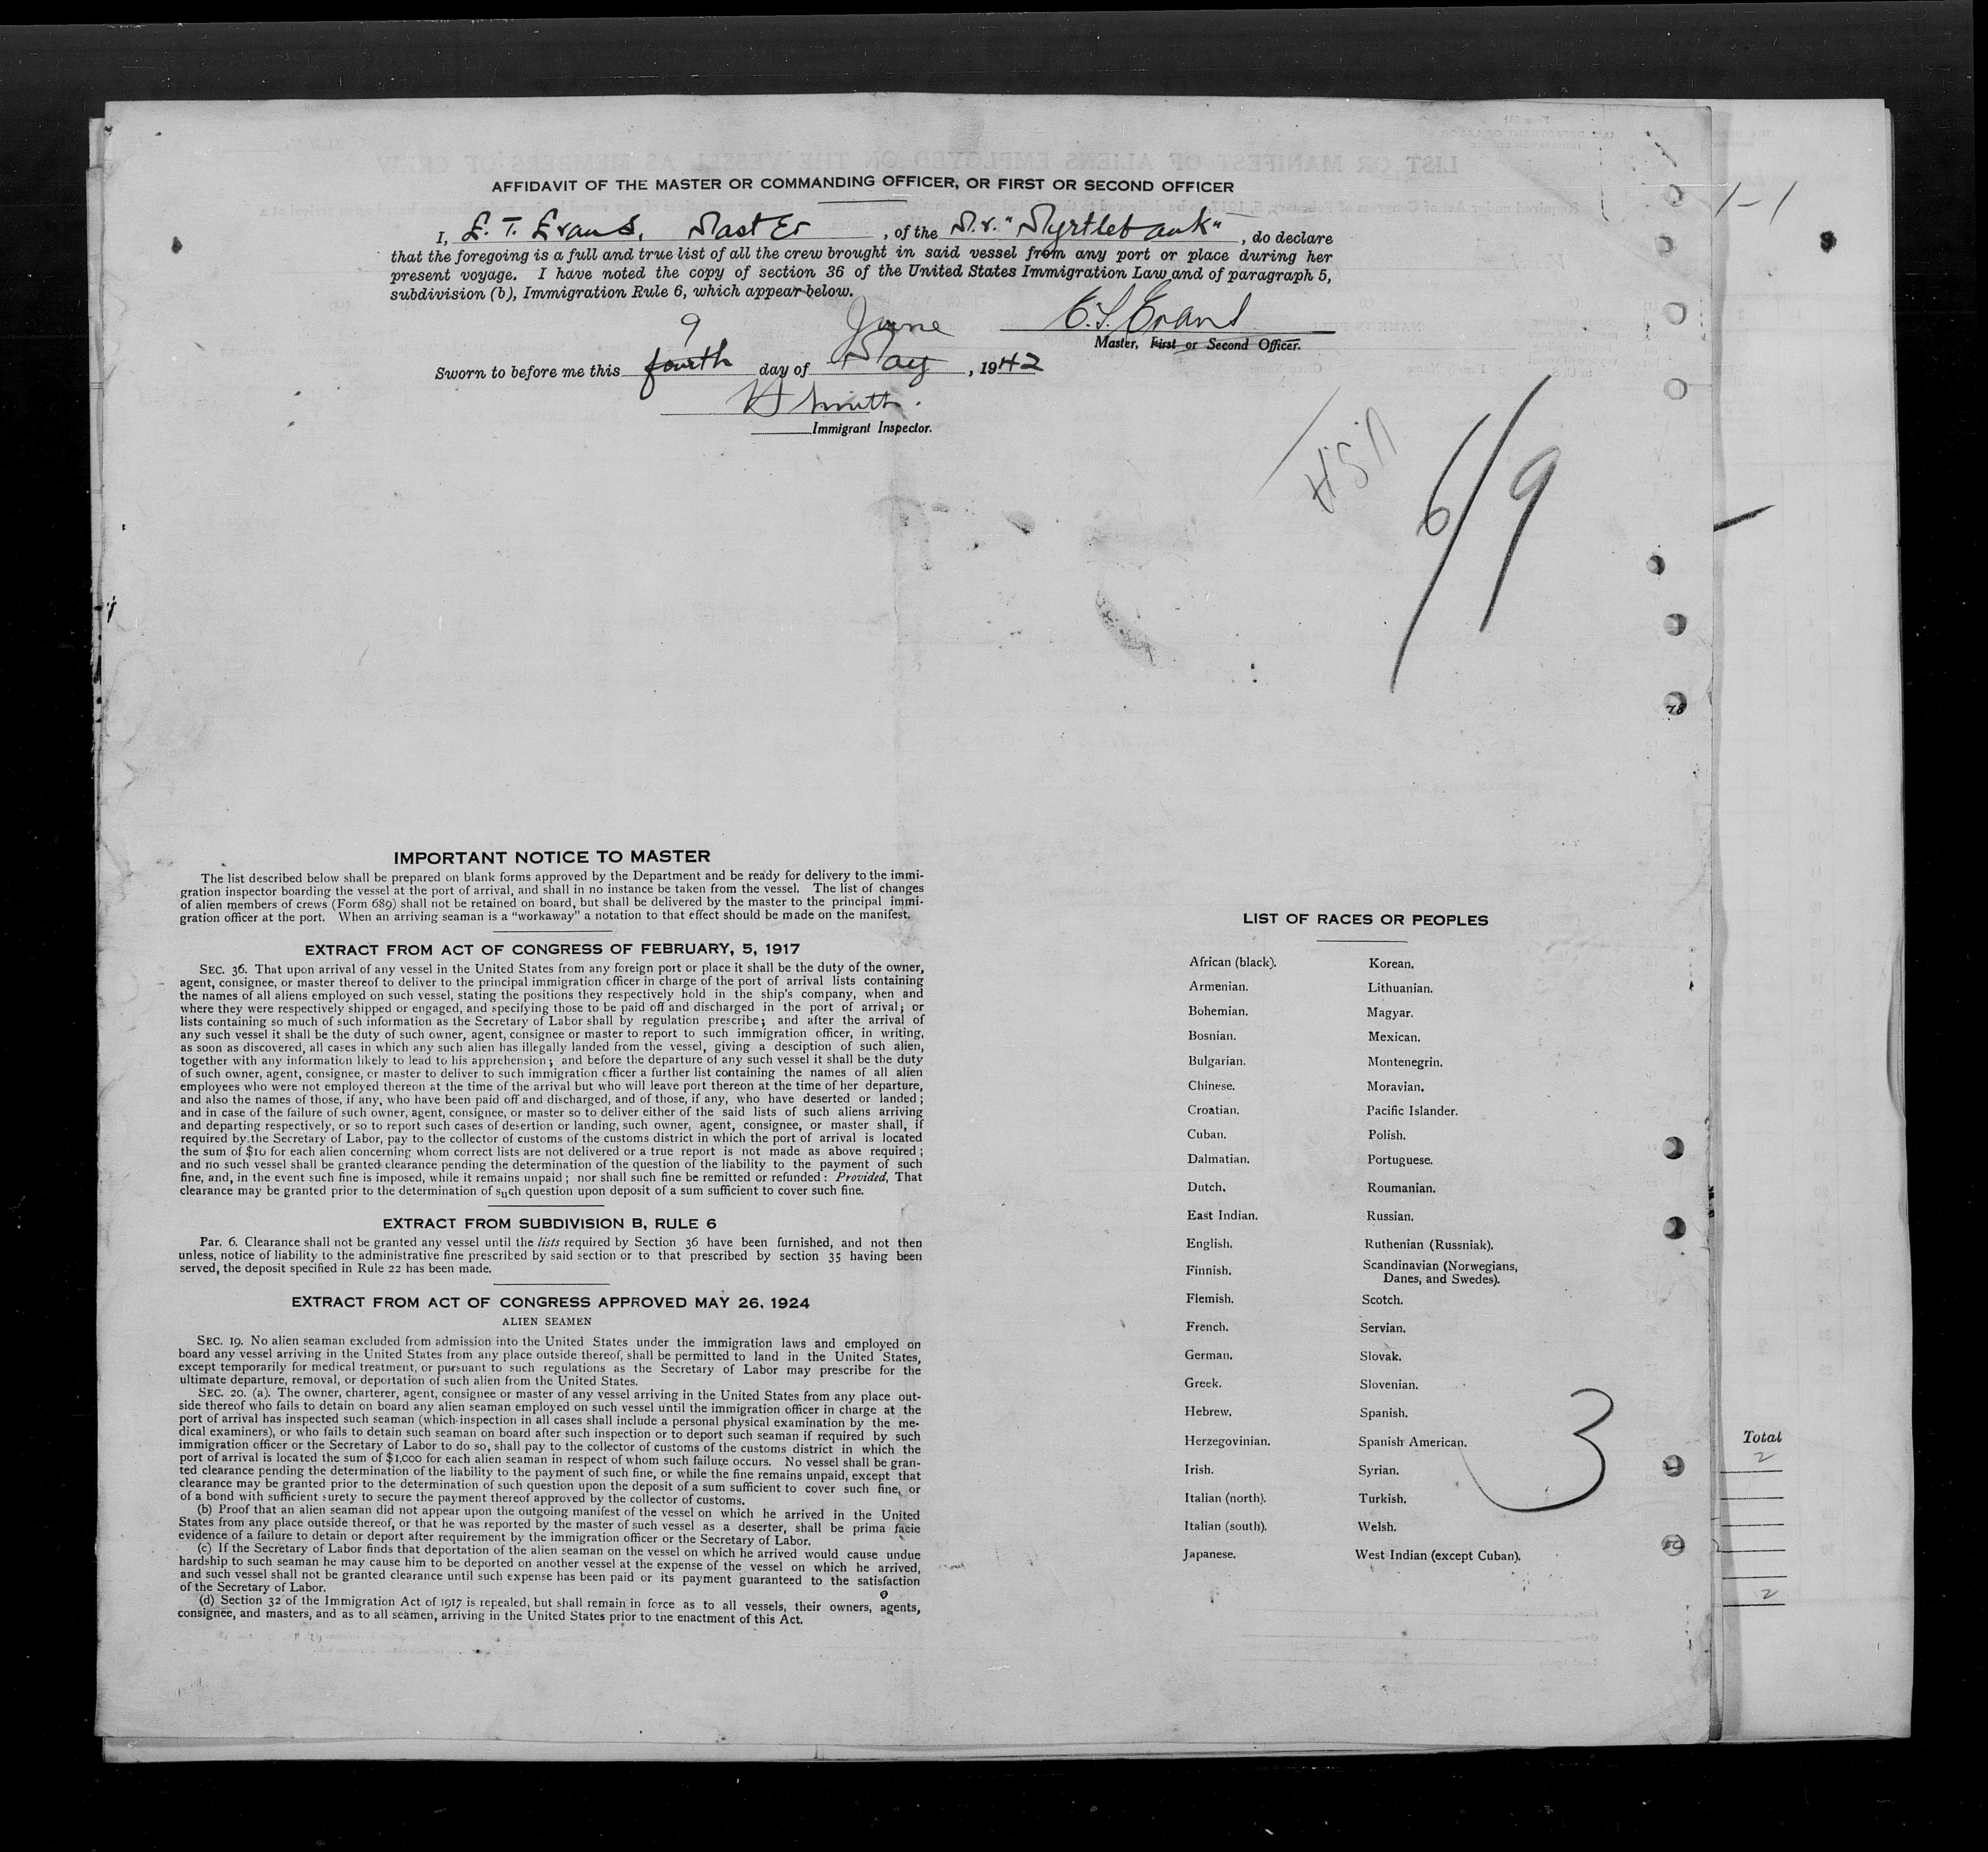 AFFIDAVIT OF THE MASTER OR COMMANDING OFFICER, OR FIRST OR SECOND OFFICER
I, E. T. Evans, Master, of the M.V. "Myrtlebank", do declare
that the foregoing is a full and true list of all the crew brought in said vessel from any port or place during her
present voyage. I have noted the copy of section 36 of the United States Immigration Law and of paragraph 5,
subdivision (b), Immigration Rule 6, which appear below.
E. T. Evans
Master, First or Second Officer.
9 June
Sworn to before me this fourth day of May, 1942
H Smith.
Immigrant Inspector.
1-1
USA
6/9
78
IMPORTANT NOTICE TO MASTER
The list described below shall be prepared on blank forms approved by the Department and be ready for delivery to the immi-
gration inspector boarding the vessel at the port of arrival, and shall in no instance be taken from the vessel. The list of changes
of alien members of crews (Form 689) shall not be retained on board, but shall be delivered by the master to the principal immi-
gration officer at the port. When an arriving seaman is a "workaway" a notation to that effect should be made on the manifest.
EXTRACT FROM ACT OF CONGRESS OF FEBRUARY, 5, 1917
SEC. 36. That upon arrival of any vessel in the United States from any foreign port or place it shall be the duty of the owner,
agent, consignee, or master thereof to deliver to the principal immigration officer in charge of the port of arrival lists containing
the names of all aliens employed on such vessel, stating the positions they respectively hold in the ship's company, when and
where they were respectively shipped or engaged, and specifying those to be paid off and discharged in the port of arrival; or
lists containing so much of such information as the Secretary of Labor shall by regulation prescribe; and after the arrival of
any such vessel it shall be the duty of such owner, agent, consignee or master to report to such immigration officer, in writing,
as soon as discovered, all cases in which any such alien has illegally landed from the vessel, giving a desciption of such alien,
together with any information likely to lead to his apprehension; and before the departure of any such vessel it shall be the duty
of such owner, agent, consignee, or master to deliver to such immigration officer a further list containing the names of all alien
employees who were not employed thereon at the time of the arrival but who will leave port thereon at the time of her departure,
and also the names of those, if any, who have been paid off and discharged, and of those, if any, who have deserted or landed;
and in case of the failure of such owner, agent, consignee, or master so to deliver either of the said lists of such aliens arriving
and departing respectively, or so to report such cases of desertion or landing, such owner, agent, consignee, or master shall, if
required by the Secretary of Labor, pay to the collector of customs of the customs district in which the port of arrival is located
the sum of $10 for each alien concerning whom correct lists are not delivered or a true report is not made as above required;
and no such vessel shall be granted clearance pending the determination of the question of the liability to the payment of such
fine, and, in the event such fine is imposed, while it remains unpaid; nor shall such fine be remitted or refunded: Provided, That
clearance may be granted prior to the determination of such question upon deposit of a sum sufficient to cover such fine.
EXTRACT FROM SUBDIVISION B, RULE 6
Par. 6. Clearance shall not be granted any vessel until the lists required by Section 36 have been furnished, and not then
unless, notice of liability to the administrative fine prescribed by said section or to that prescribed by section 35 having been
served, the deposit specified in Rule 22 has been made.
EXTRACT FROM ACT OF CONGRESS APPROVED MAY 26, 1924
ALIEN SEAMEN
SEC. 19. No alien seaman excluded from admission into the United States under the immigration laws and employed on
board any vessel arriving in the United States from any place outside thereof, shall be permitted to land in the United States,
except temporarily for medical treatment, or pursuant to such regulations as the Secretary of Labor may prescribe for the
ultimate departure, removal, or deportation of such alien from the United States.
SEC. 20. (a). The owner, charterer, agent, consignee or master of any vessel arriving in the United States from any place out-
side thereof who fails to detain on board any alien seaman employed on such vessel until the immigration officer in charge at the
port of arrival has inspected such seaman (which inspection in all cases shall include a personal physical examination by the me-
dical examiners), or who fails to detain such seaman on board after such inspection or to deport such seaman if required by such
immigration officer or the Secretary of Labor to do so, shall pay to the collector of customs of the customs district in which the
port of arrival is located the sum of $1,000 for each alien seaman in respect of whom such failure occurs. No vessel shall be gran-
ted clearance pending the determination of the liability to the payment of such fine, or while the fine remains unpaid, except that
clearance may be granted prior to the determination of such question upon the deposit of a sum sufficient to cover such fine, or
of a bond with sufficient surety to secure the payment thereof approved by the collector of customs.
(b) Proof that an alien seaman did not appear upon the outgoing manifest of the vessel on which he arrived in the United
States from any place outside thereof, or that he was reported by the master of such vessel as a deserter, shall be prima facie
evidence of a failure to detain or deport after requirement by the immigration officer or the Secretary of Labor.
(c) If the Secretary of Labor finds that deportation of the alien seaman on the vessel on which he arrived would cause undue
hardship to such seaman he may cause him to be deported on another vessel at the expense of the vessel on which he arrived,
and such vessel shall not be granted clearance until such expense has been paid or its payment guaranteed to the satisfaction
of the Secretary of Labor.
(d) Section 32 of the Immigration Act of 1917 is repealed, but shall remain in force as to all vessels, their owners, agents,
consignee, and masters, and as to all seamen, arriving in the United States prior to the enactment of this Act.
LIST OF RACES OR PEOPLES
African (black).
Armenian.
Bohemian.
Bosnian.
Bulgarian.
Chinese.
Croatian.
Cuban.
Dalmatian.
Dutch.
East Indian.
English.
Finnish.
Flemish.
French.
German.
Greek.
Hebrew.
Herzegovinian.
Irish.
Italian (north).
Italian (south).
Japanese.
Korean.
Lithuanian.
Magyar.
Mexican.
Montenegrin.
Moravian.
Pacific Islander.
Polish.
Portuguese.
Roumanian.
Russian.
Ruthenian (Russniak).
Scandinavian (Norwegians,
Danes, and Swedes).
Scotch.
Servian.
Slovak.
Slovenian.
Spanish.
Spanish American.
Syrian.
Turkish.
Welsh.
West Indian (except Cuban).
3
Total
2
2